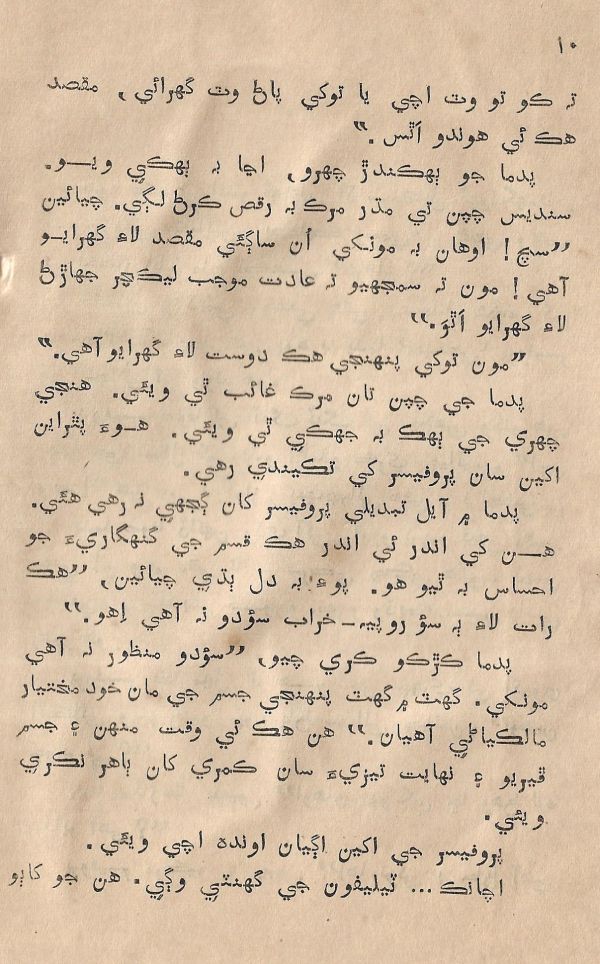 ۱۰
تہ ڪو تو وٽ اچي يا توکي پاڻ وٽ گهرائي، مقصد
هڪ ئي هوندو اَٿس.“
پدما جو ٻهڪندڙ چهرو، اڃا بہ ٻهڪي ويــو.
سنديس چپن تي مڌر مرڪ بہ رقص ڪرڻ لڳي. چيائين
”سچ! اوهان بہ مونکي اُن ساڳئي مقصد لاءِ گهرايــو
آهي! مون تہ سمجهيو تہ عادت موجب ليڪچر جهاڙڻ
لاءِ گهرايو اَٿوَ.“
”مون توکي پنهنجي هڪ دوست لاءِ گهرايو آهي.“
پدما جي چپن تان مرڪ غائب ٿي ويئي. هنجي
چهري جي ٻهڪ بہ جهڪي ٿي ويئي. هــوءَ پٿراين
اکين سان پروفيسر کي تڪيندي رهي.
پدما ۾ آيل تبديلي پروفيسر کان ڳجهي نہ رهي هئي.
هــن کي اندر ئي اندر هڪ قسم جي گنهگاريءَ جو
احساس بہ ٿيو هو. پوءِ بہ دل ٻڌي چيائين، ”هڪ
رات لاءِ ٻہ سؤ روپيہ – خراب سؤدو نہ آهي اِهو.“
پدما ڪڙڪو ڪري چيو، ”سؤدو منظور نہ آهي
مونکي. گهٽ ۾ گهٽ پنهنجي جسم جي مان خود مختيار
مالڪياڻي آهيان.“ هن هڪ ئي وقت منهن ۽ جسم
ڦيريو ۽ نهايت تيزيءَ سان ڪمري کان ٻاهر نڪري
ويئي.
پروفيسر جي اکين اڳيان اونده اچي ويئي.
اچانڪ... ٽيليفون جي گهنٽي وڳي. هن جو کاٻو